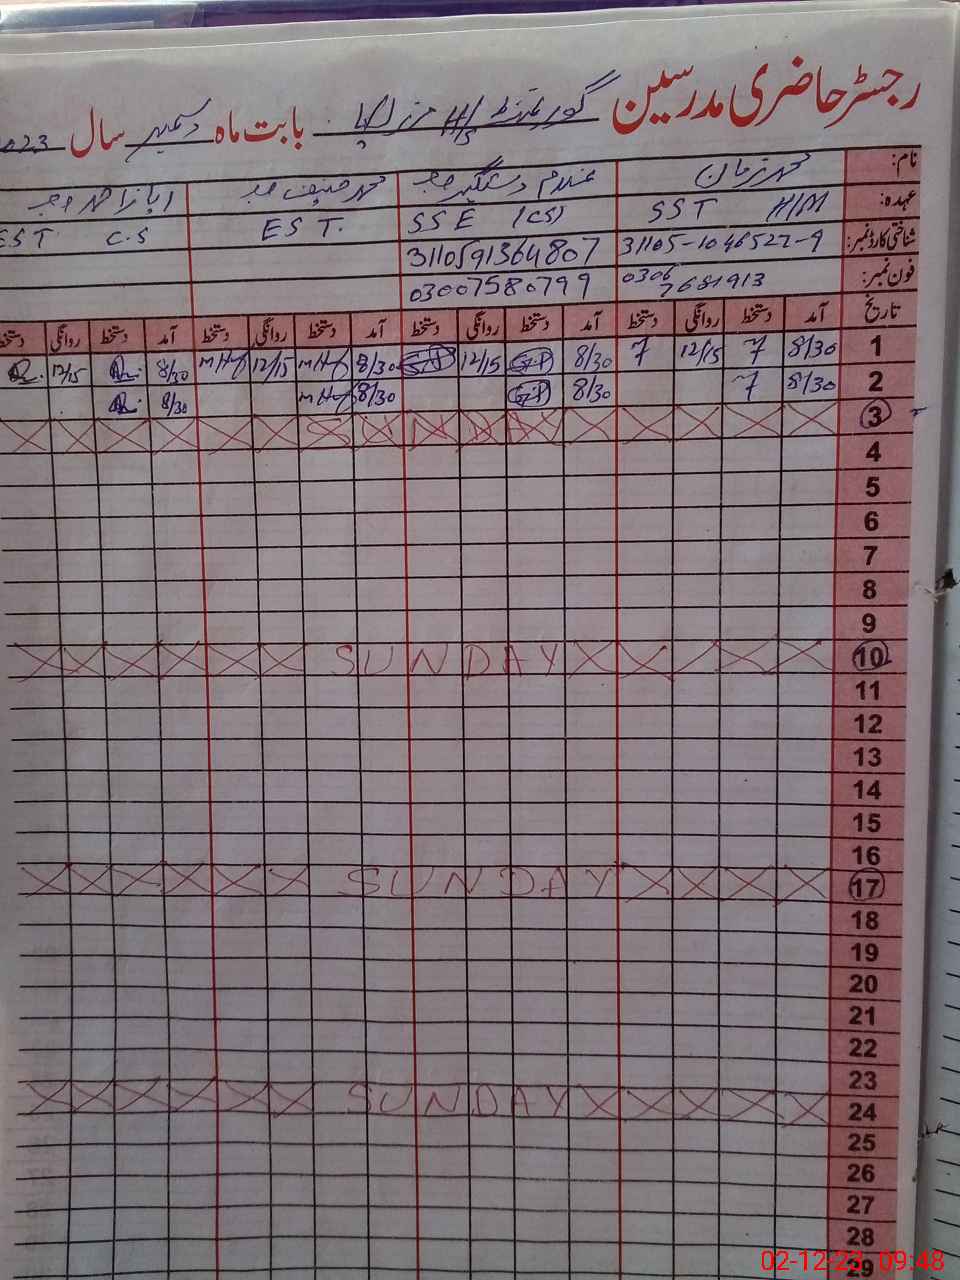 رجسٹر حاضری مدرسین گورنمنٹ H/S بابت ماہ دسمبر سال 2023
نام: محمد زمان غلام دستگیر محمد حنیف
عہدہ: SST H/M SSE (CS) EST. EST C.S
شناختی کارڈ نمبر: 31105-1046527-9 3110591364807
فون نمبر: 0306 7681913 03007580799
تاریخ آمد دستخط روانگی دستخط آمد دستخط روانگی دستخط آمد دستخط روانگی دستخط آمد دستخط روانگی دستخط
1 8/30 7 12/15 7 8/30 12/15 8/30 12/15 8/30 12/15
2 8/30 7 8/30 8/30 8/30
3 SUNDAY
4
5
6
7
8
9
10 SUNDAY
11
12
13
14
15
16
17 SUNDAY
18
19
20
21
22
23
24 SUNDAY
25
26
27
28
29
02-12-23 09:48